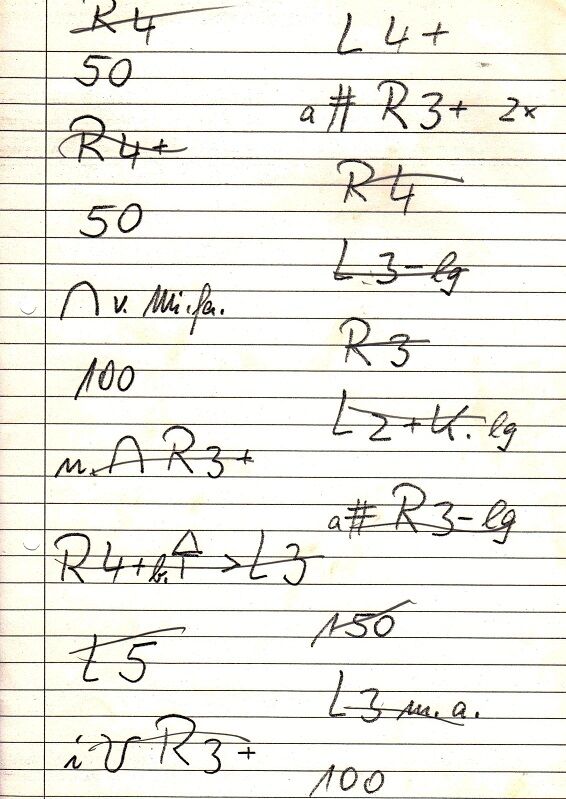 R4
50
R4+
50
∩ v. Mi.fa.
100
n. ∩ R3+
R4+b. > L3
t5
i R3+
L4+
a# R3+ 2x
R4
L3-lg
R3
L2+K. lg
a# R3-lg
150
L3 m.a.
100